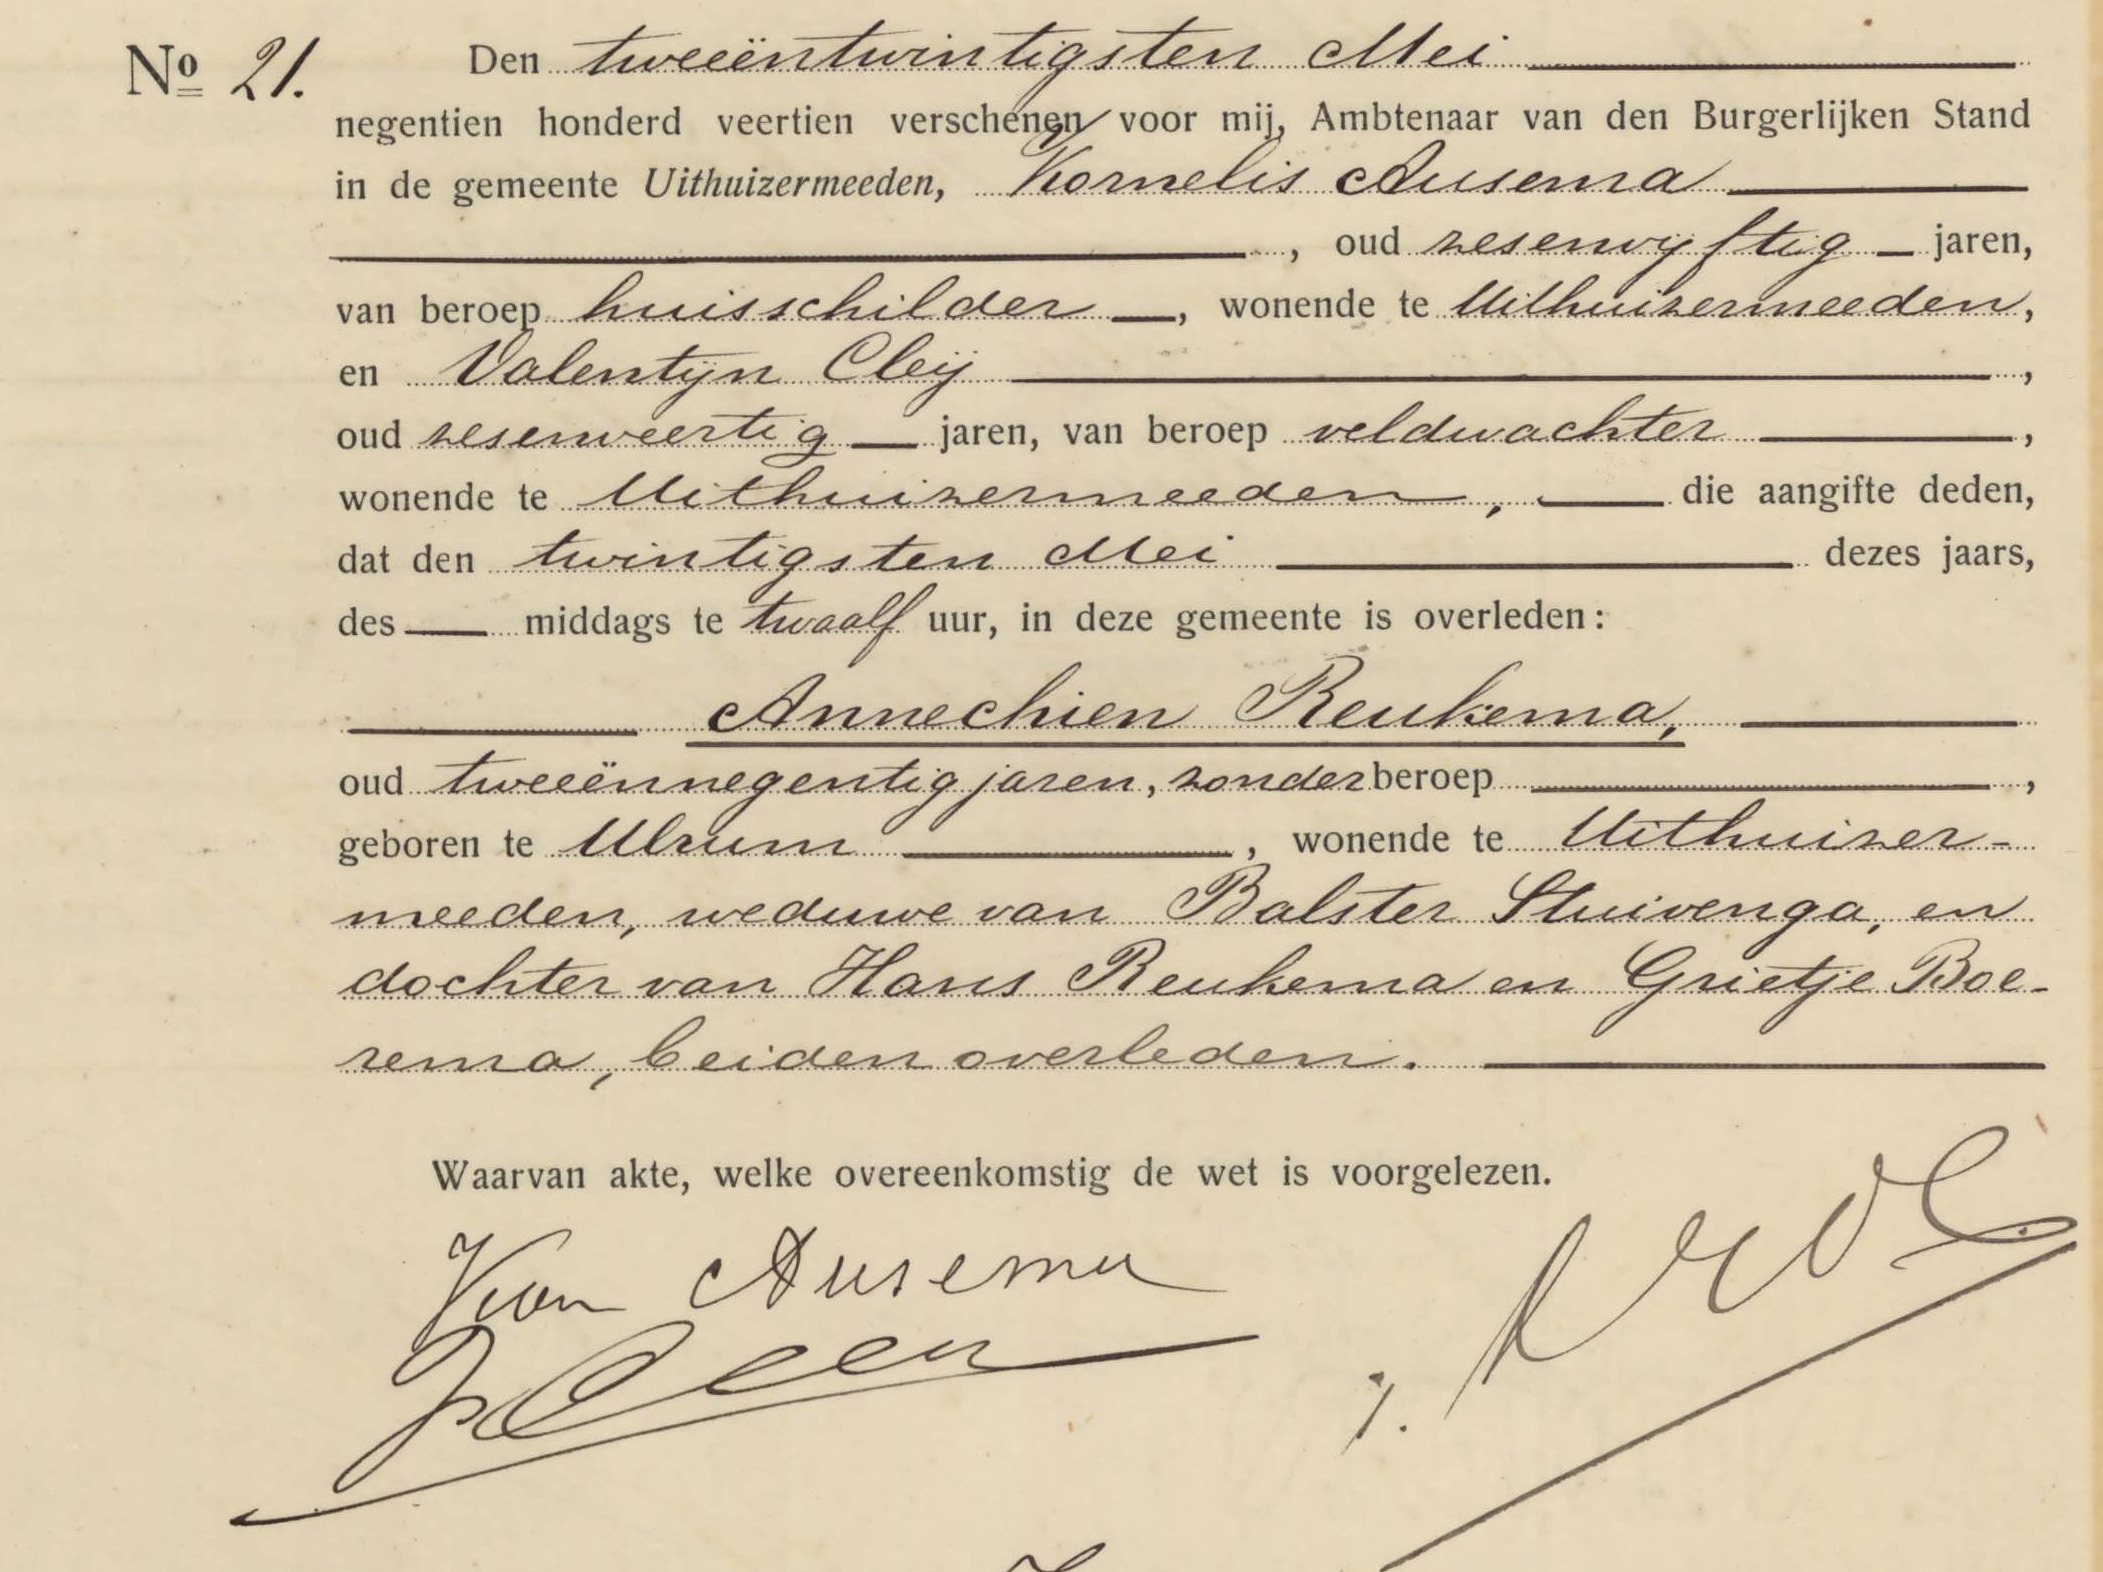 No 21. Den tweeëntwintigsten Mei
negentien honderd veertien verschenen voor mij, Ambtenaar van den Burgerlijken Stand
in de gemeente Uithuizermeeden, Kornelis Ausema
, oud zesenvijftig jaren,
van beroep huisschilder, wonende te Uithuizermeeden,
en Valentijn Cleij,
oud zesenveertig jaren, van beroep veldwachter,
wonende te Uithuizermeeden, die aangifte deden,
dat den twintigsten Mei dezes jaars,
des middags te twaalf uur, in deze gemeente is overleden:
Annechien Reukema,
oud tweeënnegentig jaren, zonder beroep,
geboren te Ulrum, wonende te Uithuizer-
meeden, weduwe van Balster Stuivenga, en
dochter van Hans Reukema en Grietje Boe-
rema, beiden overleden.
Waarvan akte, welke overeenkomstig de wet is voorgelezen.
Ausema